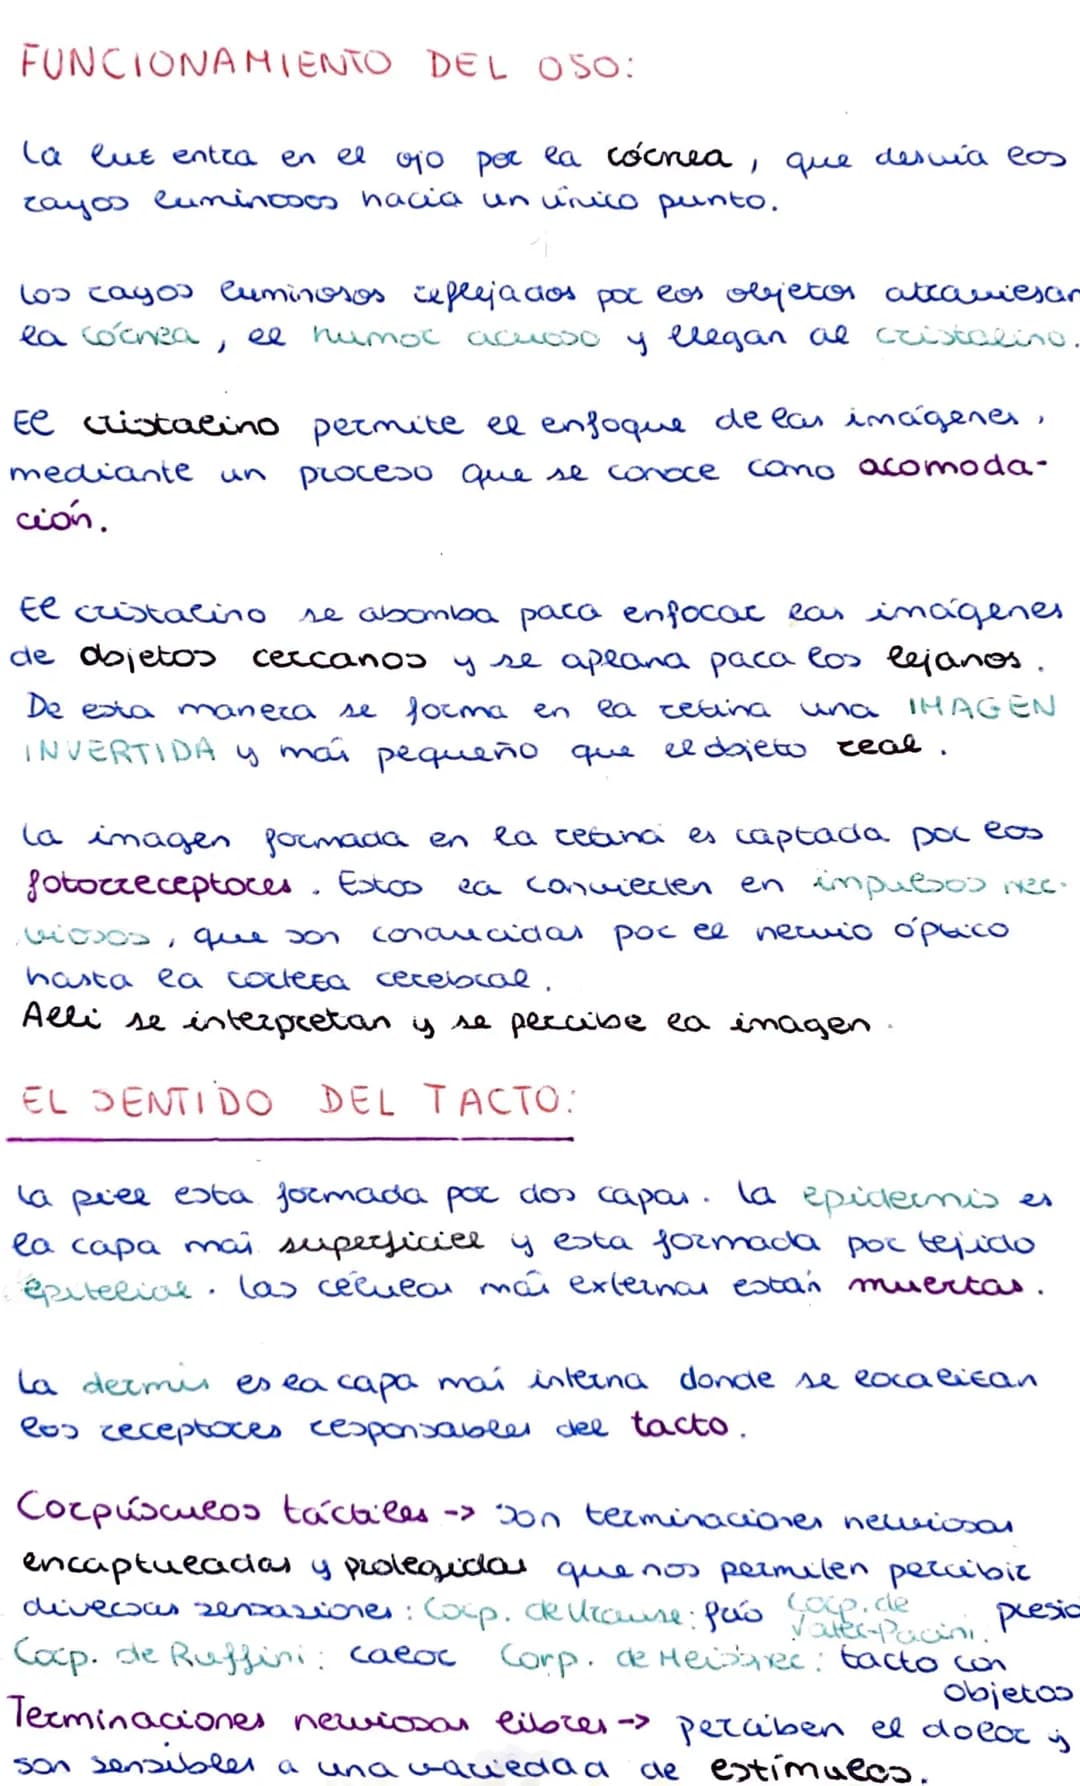 FUNCIONAMIENTO DEL OSO:
La luz entra en el ojo por la córnea, que desvía los
rayos luminosos hacia un único punto.
Los rayos luminosos reflejados por los objetos atraviesan
la córnea, el humor acuoso y llegan al cristalino.
El cristalino permite el enfoque de las imágenes,
mediante un proceso que se conoce como acomoda-
ción.
El cristalino se abomba para enfocar las imágenes
de objetos cercanos y se aplana para los lejanos.
De esta manera se forma en la retina una IMAGEN
INVERTIDA y más pequeño que el objeto real.
La imagen formada en la retina es captada por los
fotorreceptores. Estos la convierten en impulsos ner-
viosos, que son conducidas por el nervio óptico
hasta la corteza cerebral.
Alli se interpretan y se percibe la imagen.
EL SENTIDO DEL TACTO:
La piel esta formada por dos capas. La epidermis es
la capa más superficiel y esta formada por tejido
epitelial. Las células más externas están muertas.
La dermis es la capa más interna donde se localizan
los receptores responsables del tacto.
Corpúsculos táctiles -> Son terminaciones nerviosas
encaptuladas y protegidas que nos permiten percibir
diversas sensasiones: Corp. de Krause: frío Corp. de Vater-Pacini. presio
Corp. de Ruffini: calor Corp. de Meissner: tacto con
objetos
Terminaciones nerviosas libres -> perciben el dolor y
son sensibles a una variedad de estímulos.